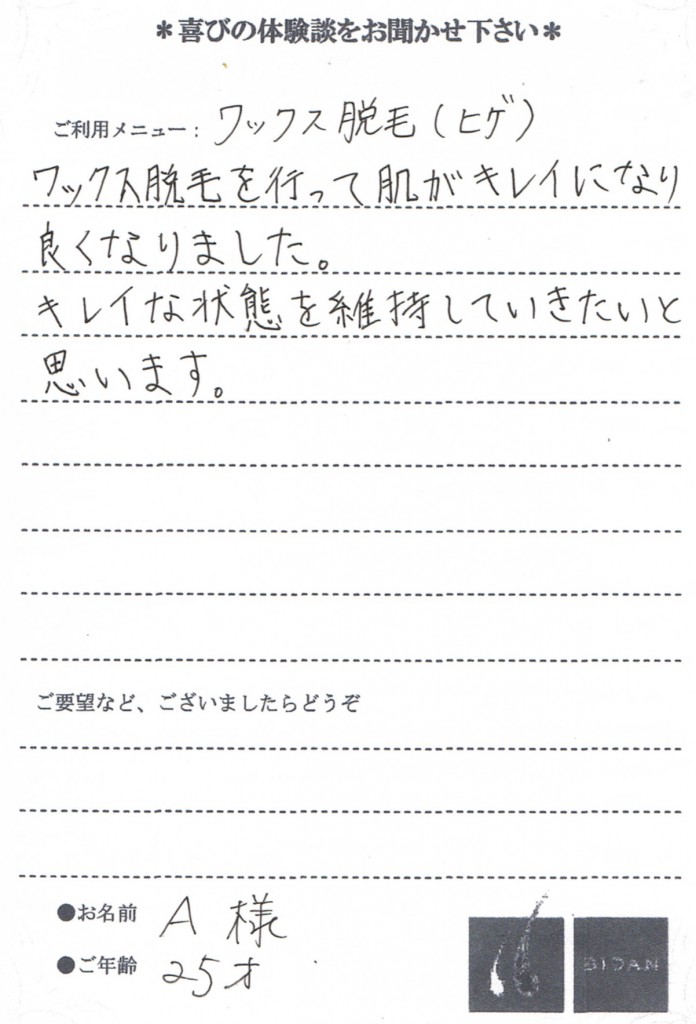 ＊喜びの体験談をお聞かせ下さい＊
ご利用メニュー： ワックス脱毛（ヒゲ）
ワックス脱毛を行って肌がキレイになり
良くなりました。
キレイな状態を維持していきたいと
思います。
ご要望など、ございましたらどうぞ
●お名前 A 様
●ご年齢 25才
BIDAN